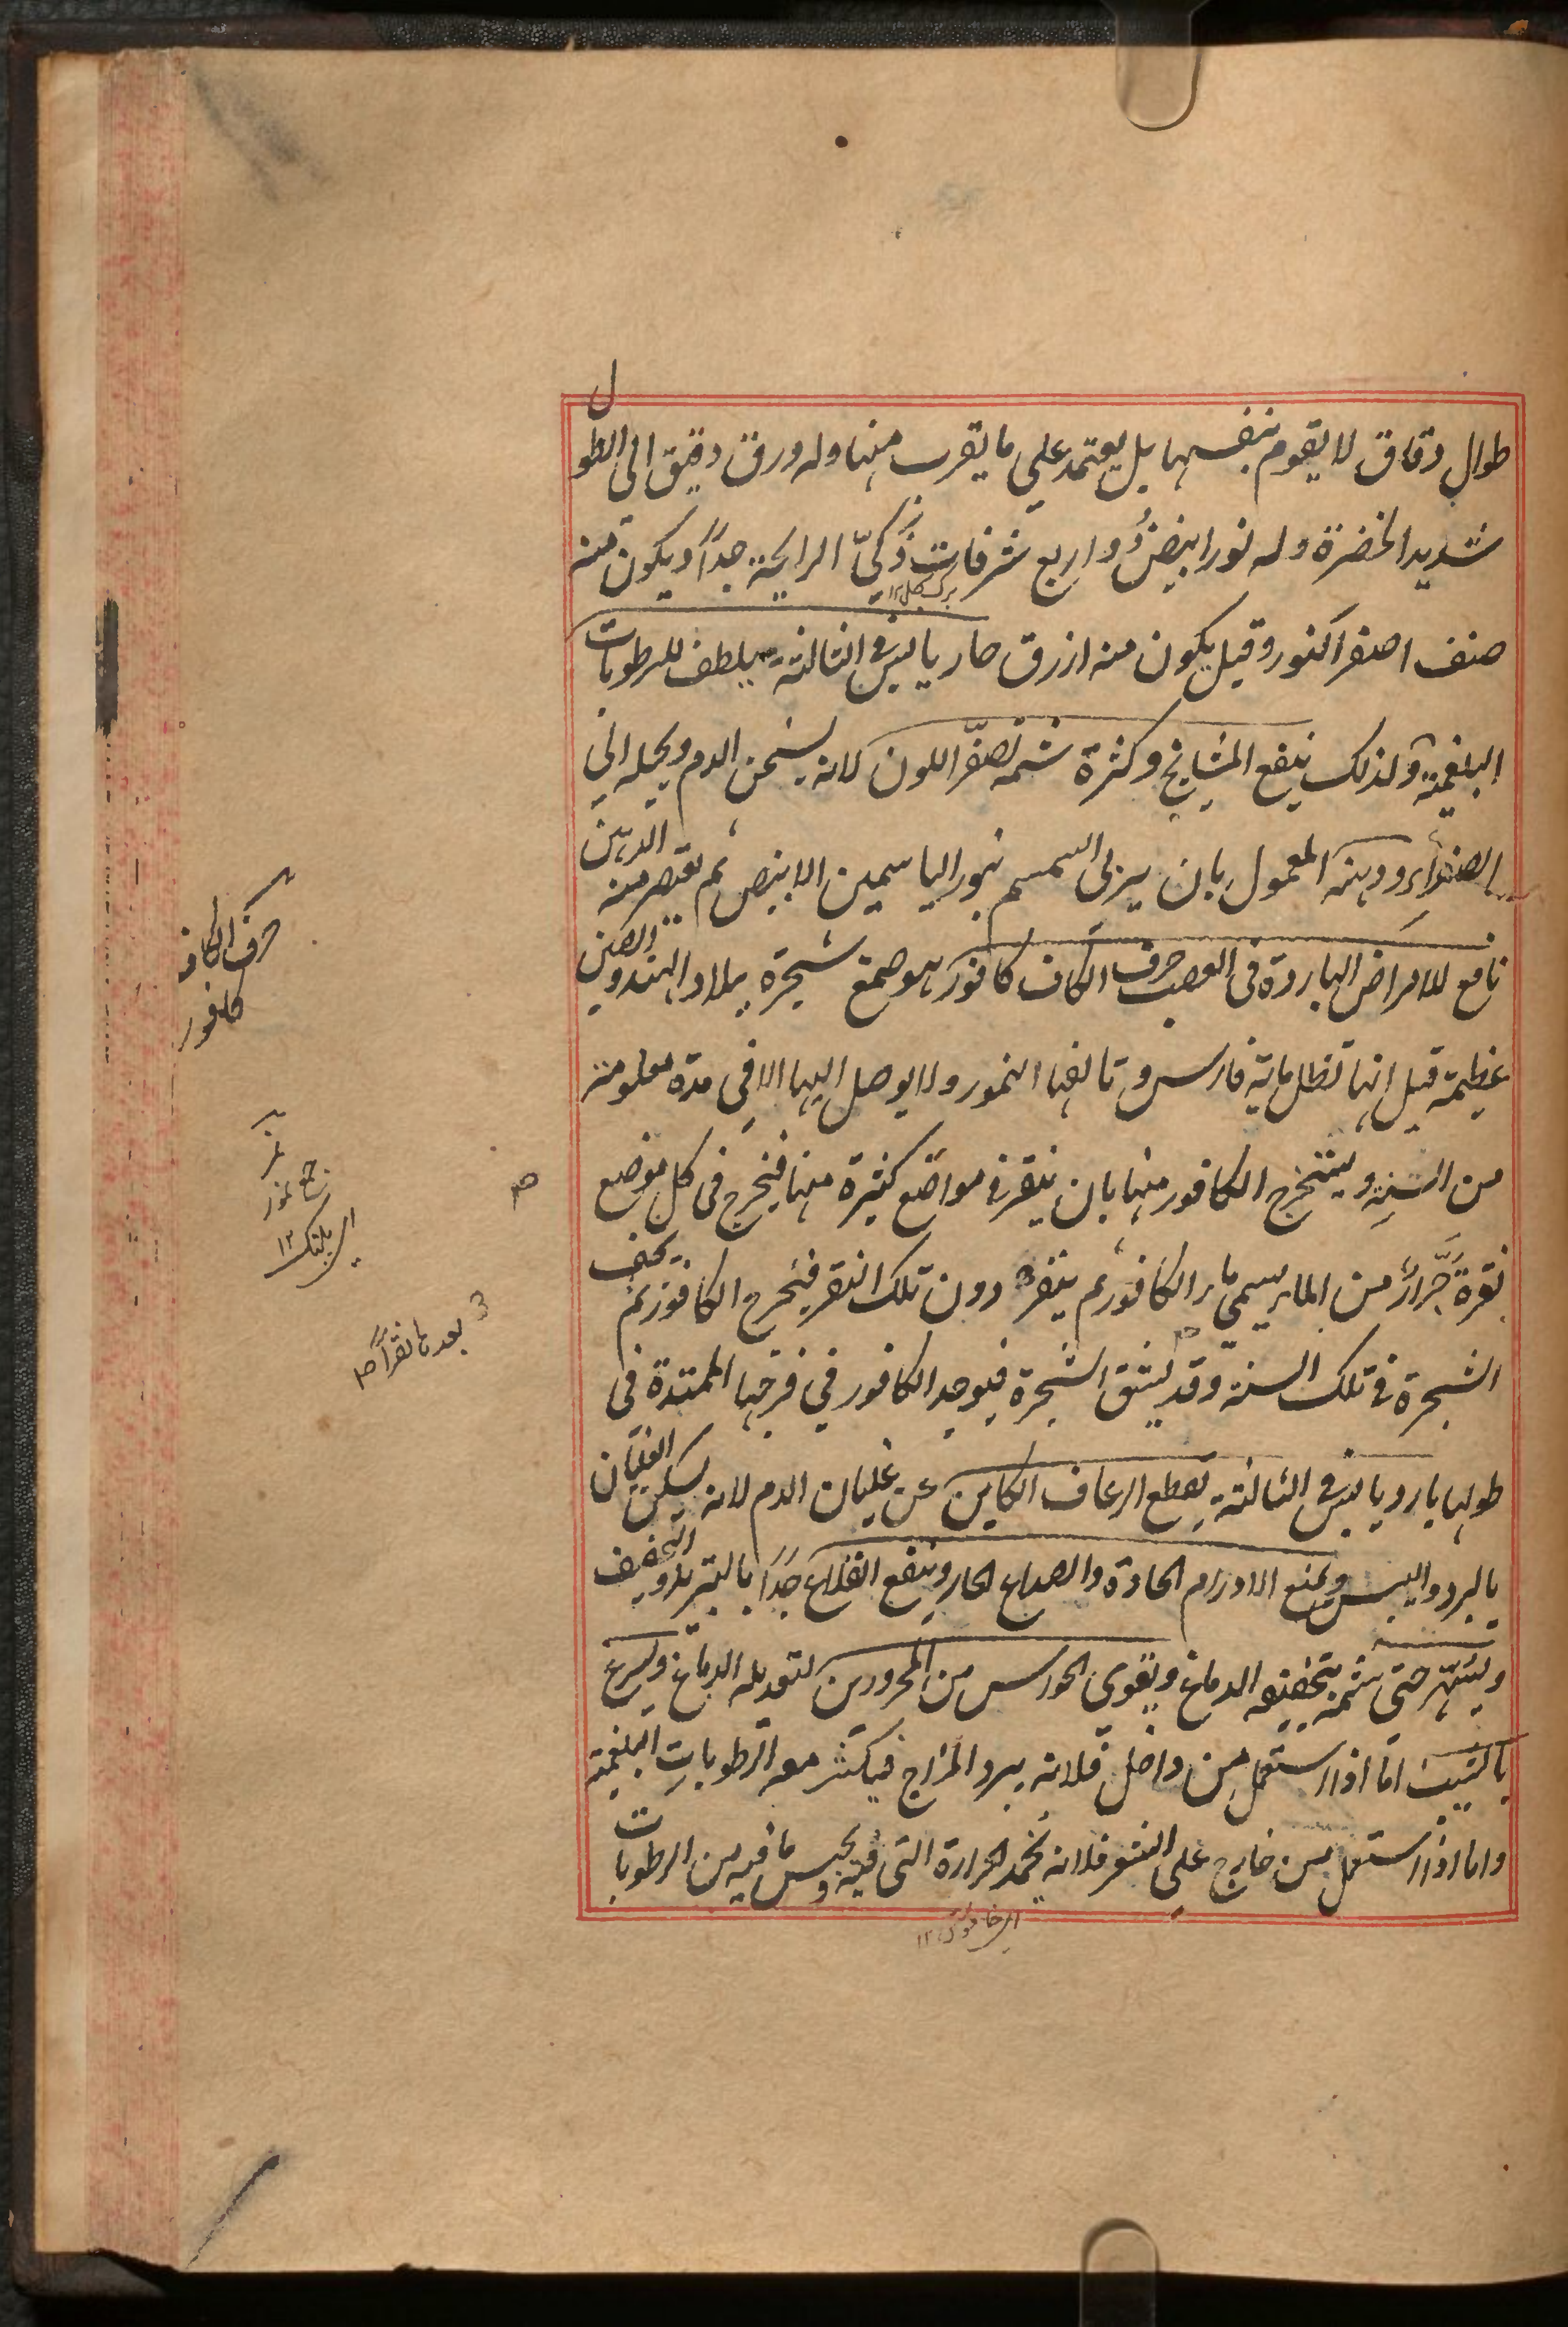 طوال دقاق لا يقوم بنفسها بل يعتمد علي ما يقرب منها وله ورق دقيق الي الطول
شديد الخضرة وله نور ابيض ذو اربع شرفات ذكيّ الرايحة جداً ويكون منه
برگ گل ١٢
صنف اصفر النور وقيل يكون منه ازرق حار يابس في الثالثة يلطف للرطوبات
البلغمية ولذلك ينفع المشايخ وكثرة شمه تصفّر اللون لانه يسخن الدم ويحيله الي
الصفراء ودهنه المعمول بان يربي السمسم بنور الياسمين الابيض ثم يعتصر منه الدهن
نافع للامراض الباردة في العصب حرف الكاف كافور هو صمغ شجرة ببلاد الهند والصين
عظيمة قيل انها تظل ماية فارس وتالفها النمور ولا يوصل اليها الا في مدة معلومة
من السنة ويستخرج الكافور منها بان ينقر في مواضع كثيرة منها فيخرج في كل موضع
نقرة جرار من الماء يسمي ماء الكافور ثم ينقر دون تلك النقر فيخرج الكافور ثم يجف
الشجرة في تلك السنة وقد يشق الشجرة فيوجد الكافور في فرجها الممتدة في
طولها بارد يابس في الثالثة يقطع الرعاف الكاين عن غليان الدم لانه يسكن الغليان
بالبرد واليبس ويمنع الاورام الحادة والصداع الحار وينفع القلاع جداً بالتبريد والتجفيف
ويسهّر حتي شمه بتجفيفه الدماغ ويقوي الحواس من المحرورين لتعديله الدماغ ويسرع
بالشيب امّا اذا استعمل من داخل فلانه يبرد المزاج فيكثر معه الرطوبات البلغمية
واما اذا استعمل من خارج علي الشعر فلانه يخمد الحرارة التي فيه ويحبس ما فيه من الرطوبات
حرف الكاف
كافور
نمر
جمع نمور
اي پلنگ ١٢
بعدها نقراً صح